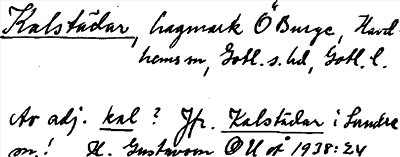 Kalstädar, hagmark Ö Burge, Havd-
hems sn, Gotl. s. hd, Gotl. l.
Av adj. kal? Jfr. Kalstädar i Sundre
sn! H. Gustavson OUÅ 1938:24